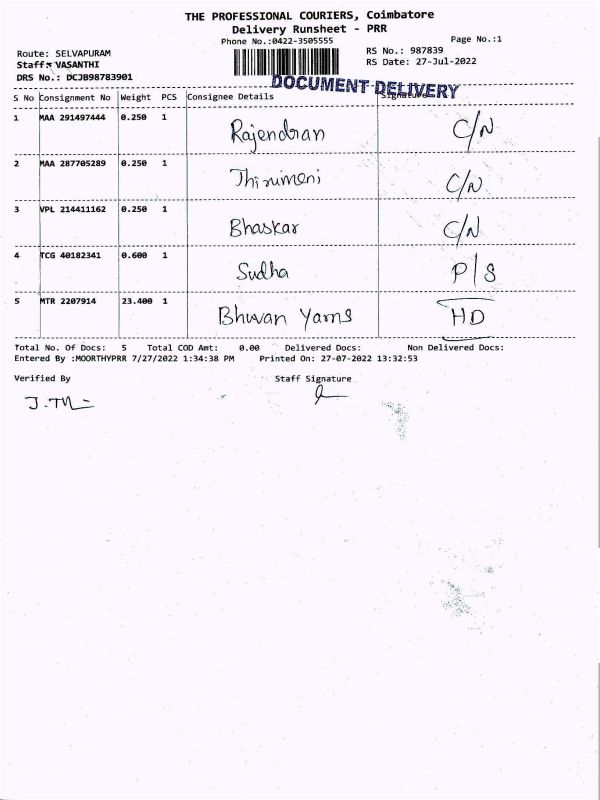 THE PROFESSIONAL COURIERS, Coimbatore
Delivery Runsheet - PRR
Phone No.:0422-3505555
Page No.:1
Route: SELVAPURAM
RS No.: 987839
Staff: VASANTHI
RS Date: 27-Jul-2022
DRS No.: DCJB98783901
DOCUMENT DELIVERY
S No Consignment No Weight PCS Consignee Details Signature
1 MAA 291497444 0.250 1 Rajendran C/N
2 MAA 287705289 0.250 1 Thirumeni C/N
3 VPL 214411162 0.250 1 Bhaskar C/N
4 TCG 40182341 0.600 1 Sudha P/S
5 MTR 2207914 23.400 1 Bhuvan Yarns HD
Total No. Of Docs: 5 Total COD Amt: 0.00 Delivered Docs: Non Delivered Docs:
Entered By :MOORTHYPRR 7/27/2022 1:34:38 PM Printed On: 27-07-2022 13:32:53
Verified By Staff Signature